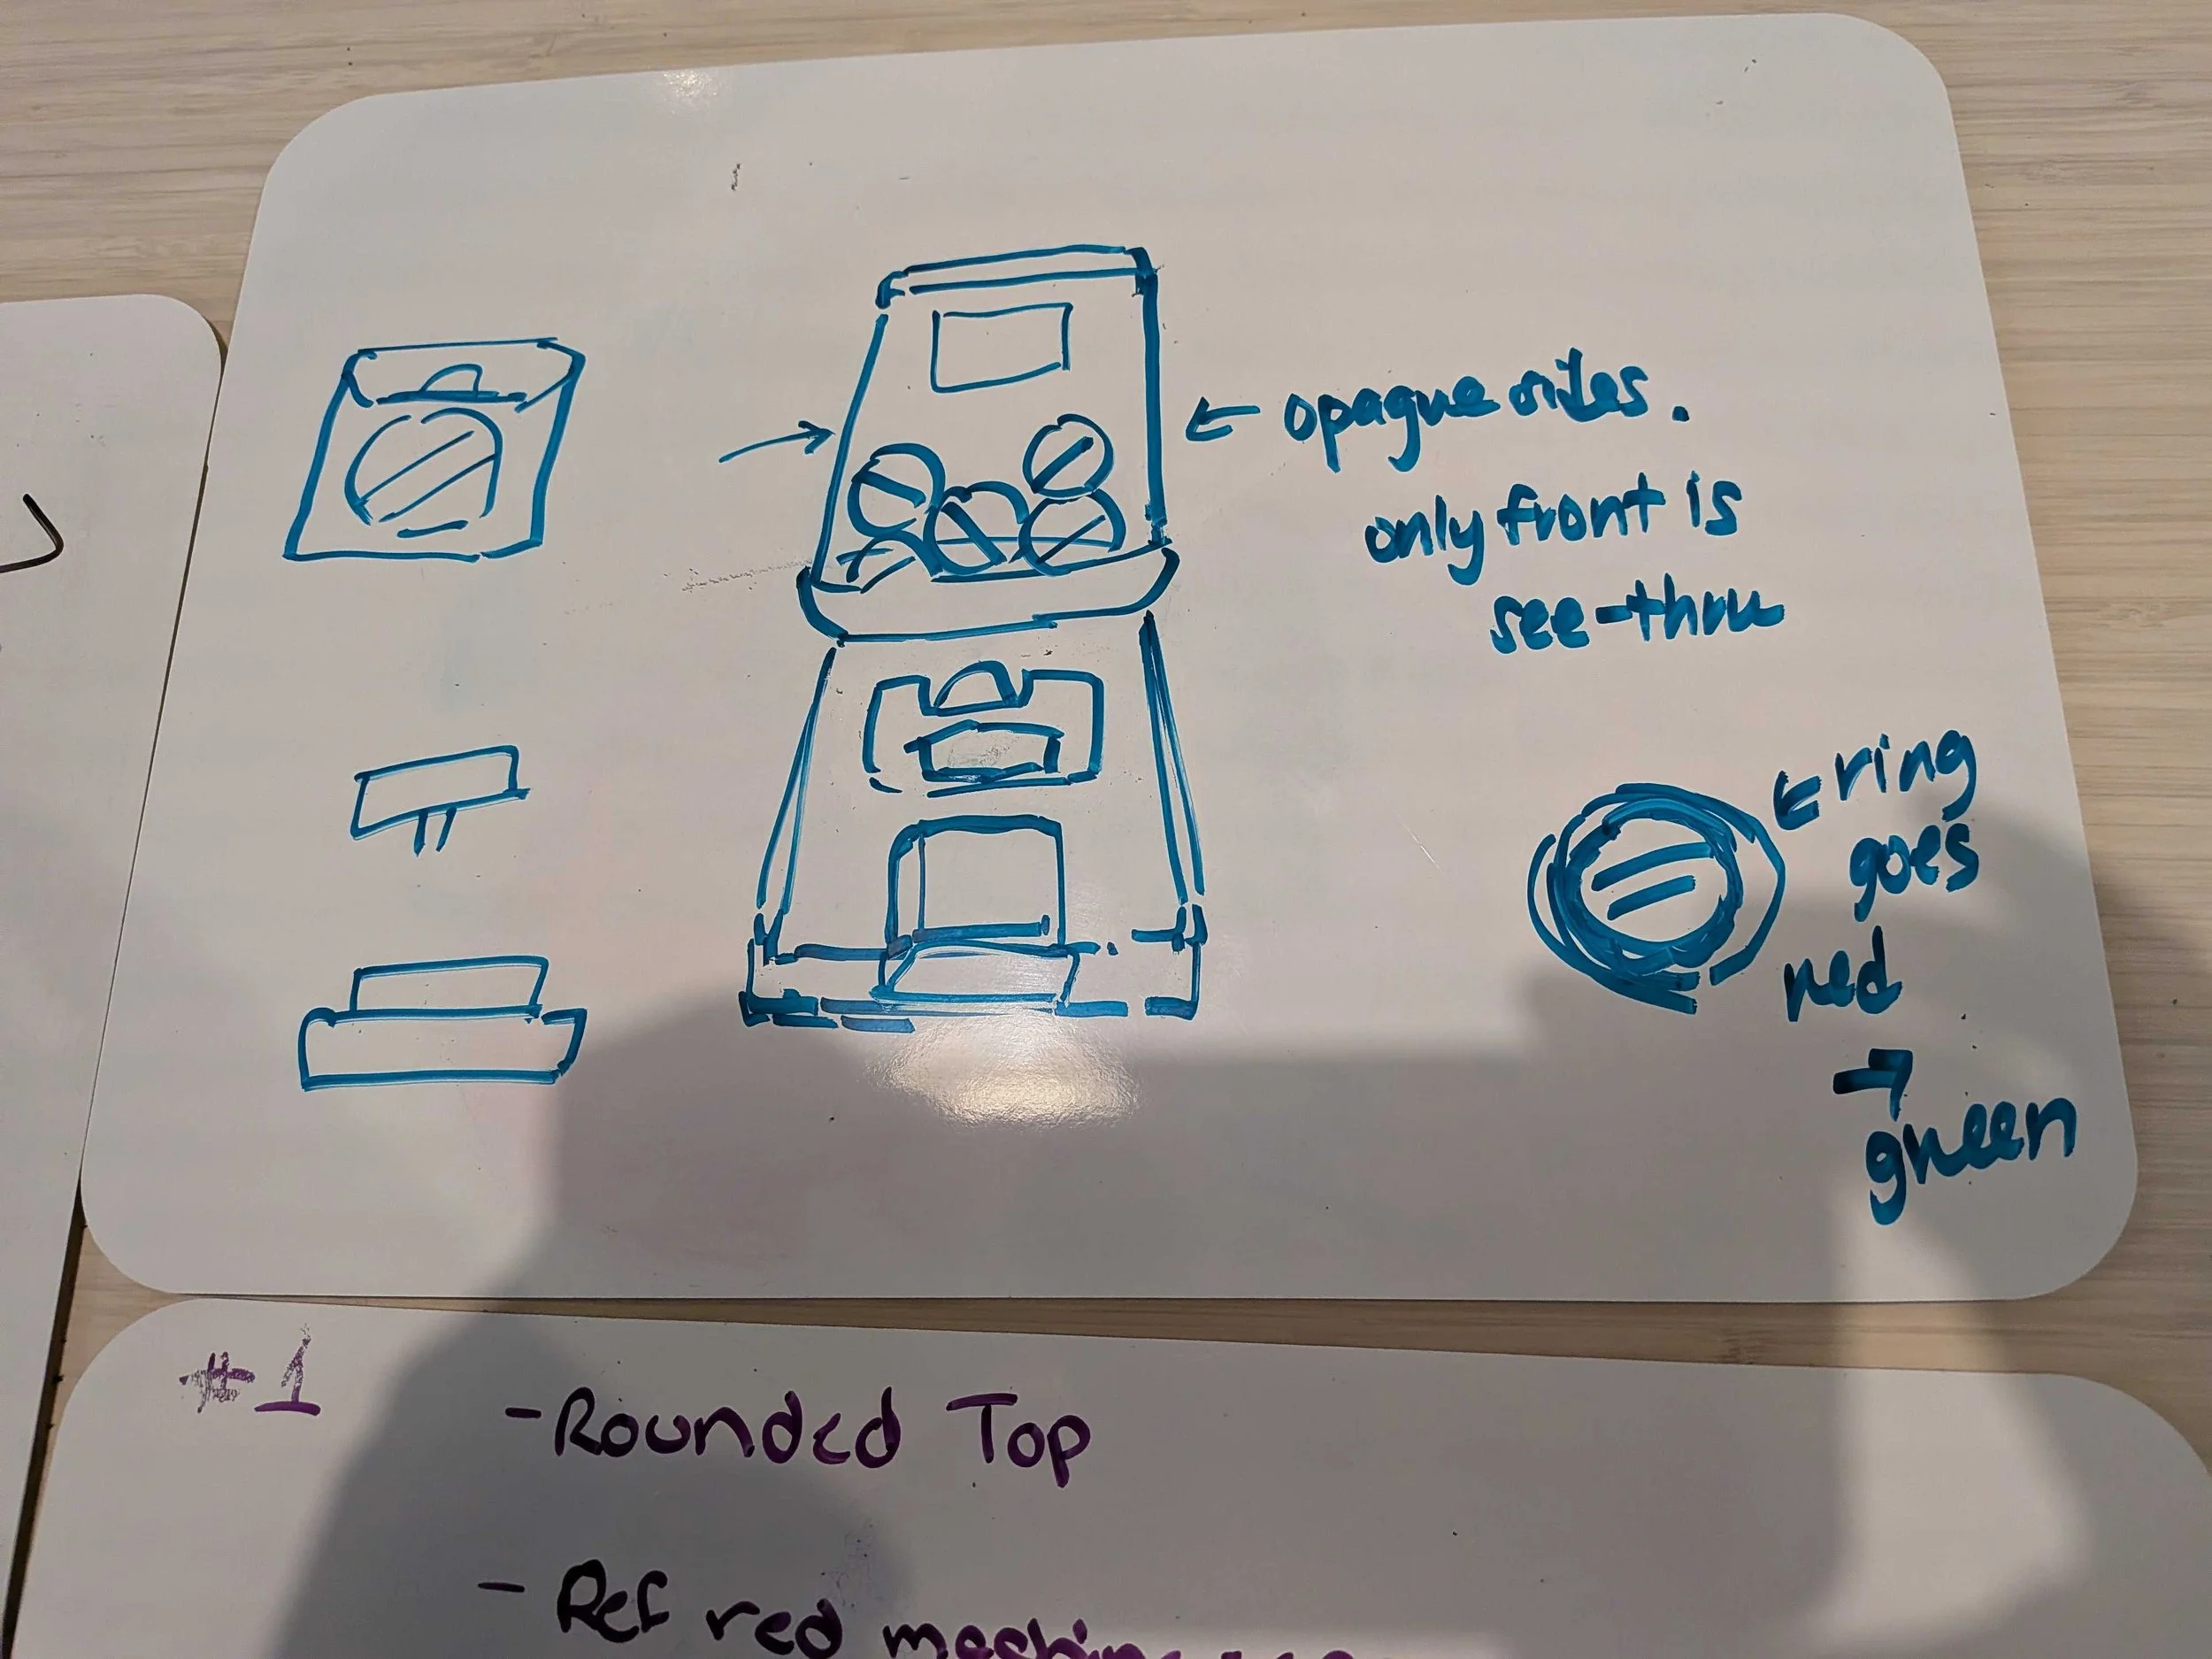 ← opaque sides.
only front is
see-thru
← ring
goes
red
→
green
#1
- Rounded Top
- Ref red machine